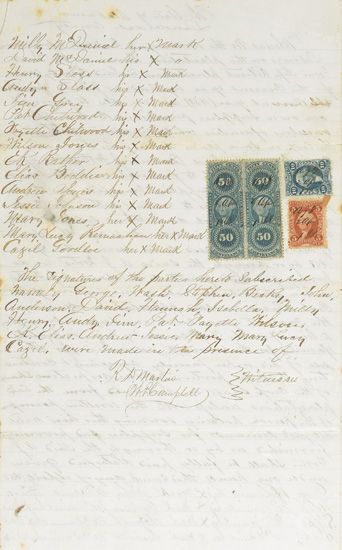 Milly McDaniel her X Mark
David McDaniel his X "
Henry Glass his X Mark
Andy Glass his X Mark
Jim Gray his X Mark
Pat Chitwood his X Mark
Fayette Chitwood his X Mark
Wilson Jones his X Mark
Ed his X Mark
Elias his X Mark
Andrew his X Mark
Jessie Johnson his X Mark
Mary Jones her X Mark
Mary Lucy her X Mark
Cazil Goodloe her X Mark
50 50
50 50
The Signatures of the parties hereto Subscribed
Namely George, Wash, Stephen, John,
Anderson, David, Hannah, Isabella, Milly
Henry, Andy, Jim, Pat, Fayette, Wilson
Ed, Elias, Andrew, Jessie, Mary, Mary Lucy
Cazil, were made in the presence of
R. A. Martin
W. Campbell
Witnesses